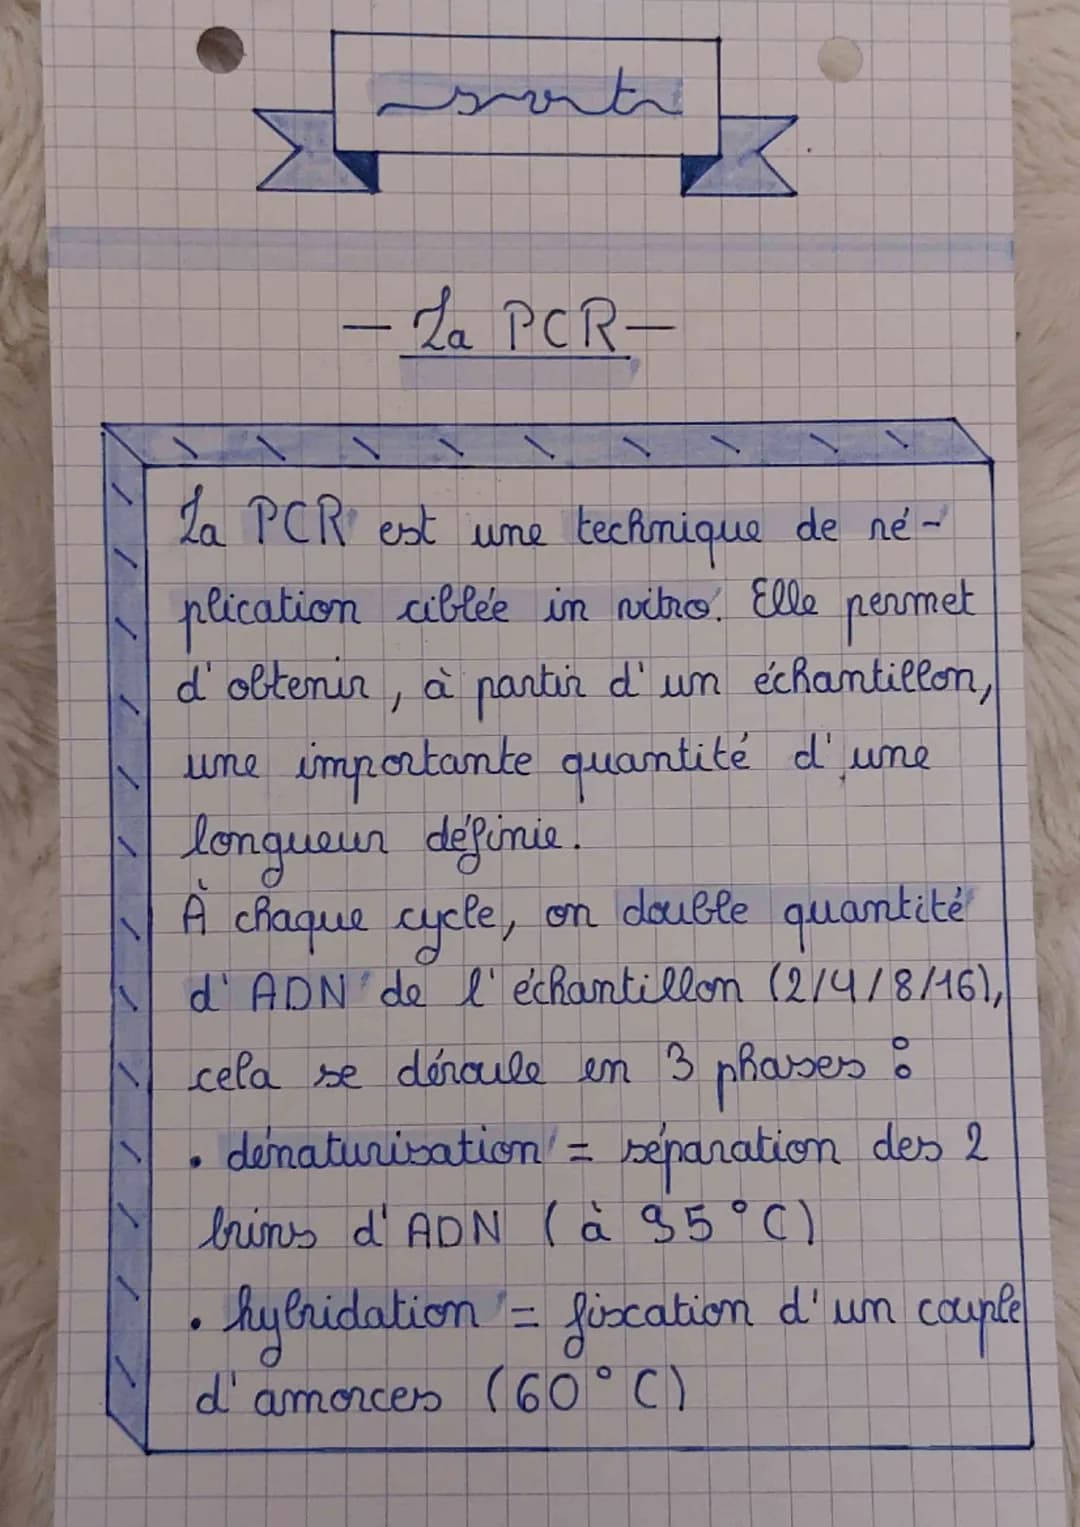 svt
- La PCR -
La PCR est une technique de ré-
plication ciblée in vitro. Elle permet
d'obtenir, à partir d'un échantillon,
une importante quantité d'une
longueur définie.
À chaque cycle, on double quantité
d'ADN de l'échantillon (2/4/8/16),
cela se déroule en 3 phases :
• dénaturisation = séparation des 2
brins d'ADN (à 95°C)
• hybridation = fixcation d'un couple
d'amorces (60°C)